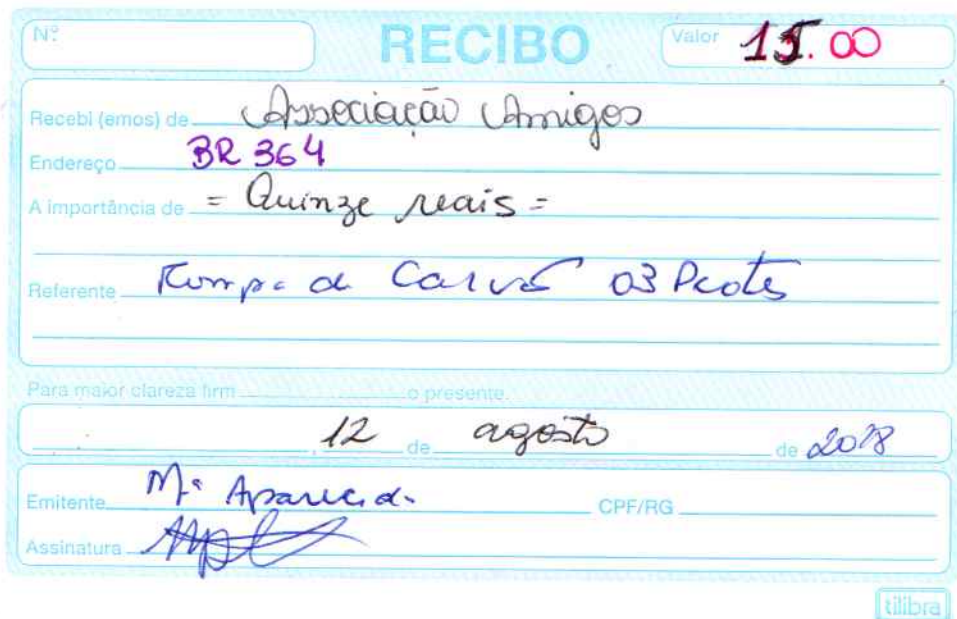 Nº RECIBO Valor 15.00
Recebi (emos) de Associação Amigos
Endereço BR 364
A importância de = Quinze reais =
Referente de Carvão 03 Pcotes
Para maior clareza firm o presente.
12 de agosto de 2018
Emitente Mª Aparecida CPF/RG
Assinatura
tilibra